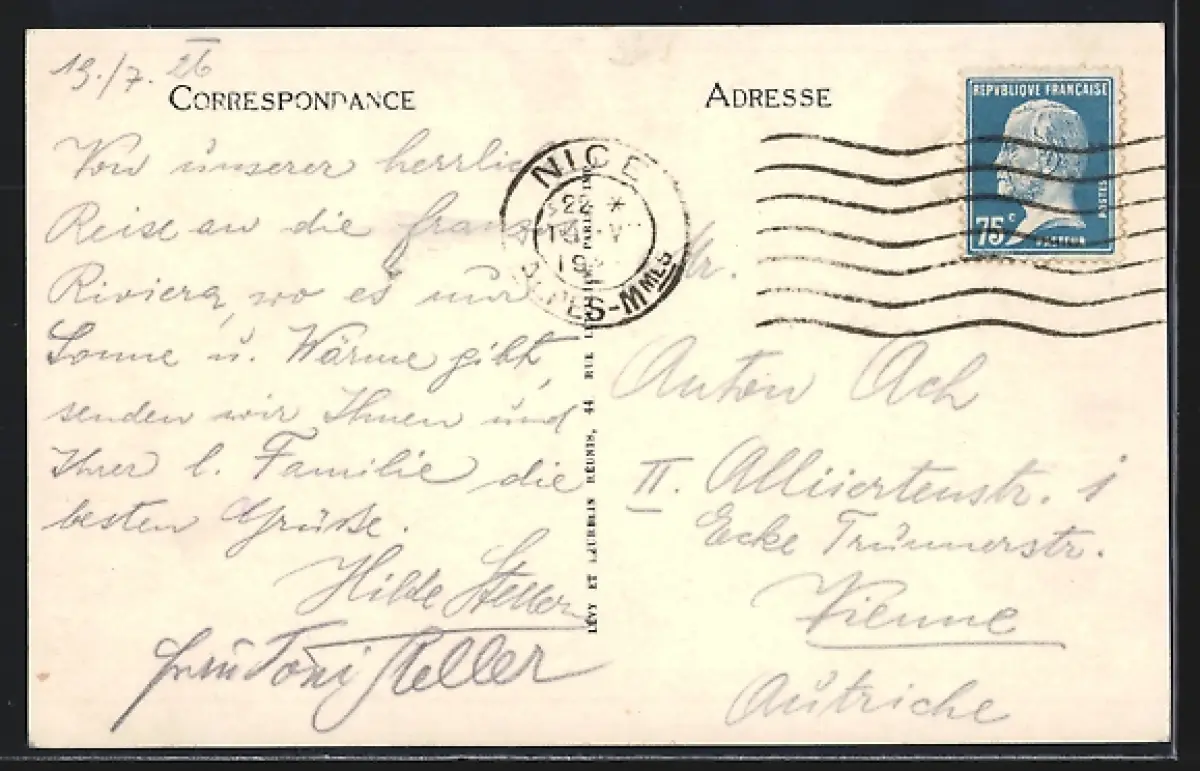 19./7. 26
CORRESPONDANCE
Von unserer herrlichen
Reise an die franz.
Riviera, wo es nur
Sonne u. Wärme gibt,
senden wir Ihnen und
Ihrer l. Familie die
besten Grüße.
Hilde Steller
Toni Steller
LÉVY ET NEURDEIN RÉUNIS, 44 RUE PARIS IMP.
NICE
22 *
19
ALPES-MMES
ADRESSE
REPVBLIQUE FRANÇAISE
POSTES
75c
PASTEUR
Hr.
Anton Ach
II. Alliiertenstr. 1
Ecke Trünnerstr.
Vienne
Autriche